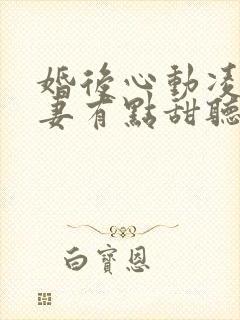 婚後心動凌
妻有點甜聽
白寶恩